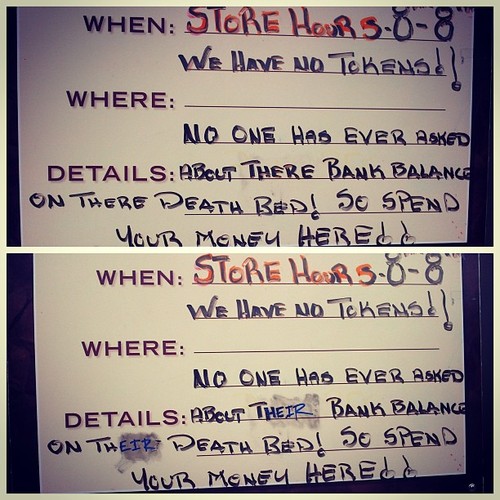 WHEN: STORE HOURS-8-8
WE HAVE NO TOKENS!!
WHERE:
NO ONE HAS EVER ASKED
DETAILS: ABOUT THERE BANK BALANCE
ON THERE DEATH BED! SO SPEND
YOUR MONEY HERE!!
WHEN: STORE HOURS-8-8
WE HAVE NO TOKENS!!
WHERE:
NO ONE HAS EVER ASKED
DETAILS: ABOUT THEIR BANK BALANCE
ON THEIR DEATH BED! SO SPEND
YOUR MONEY HERE!!